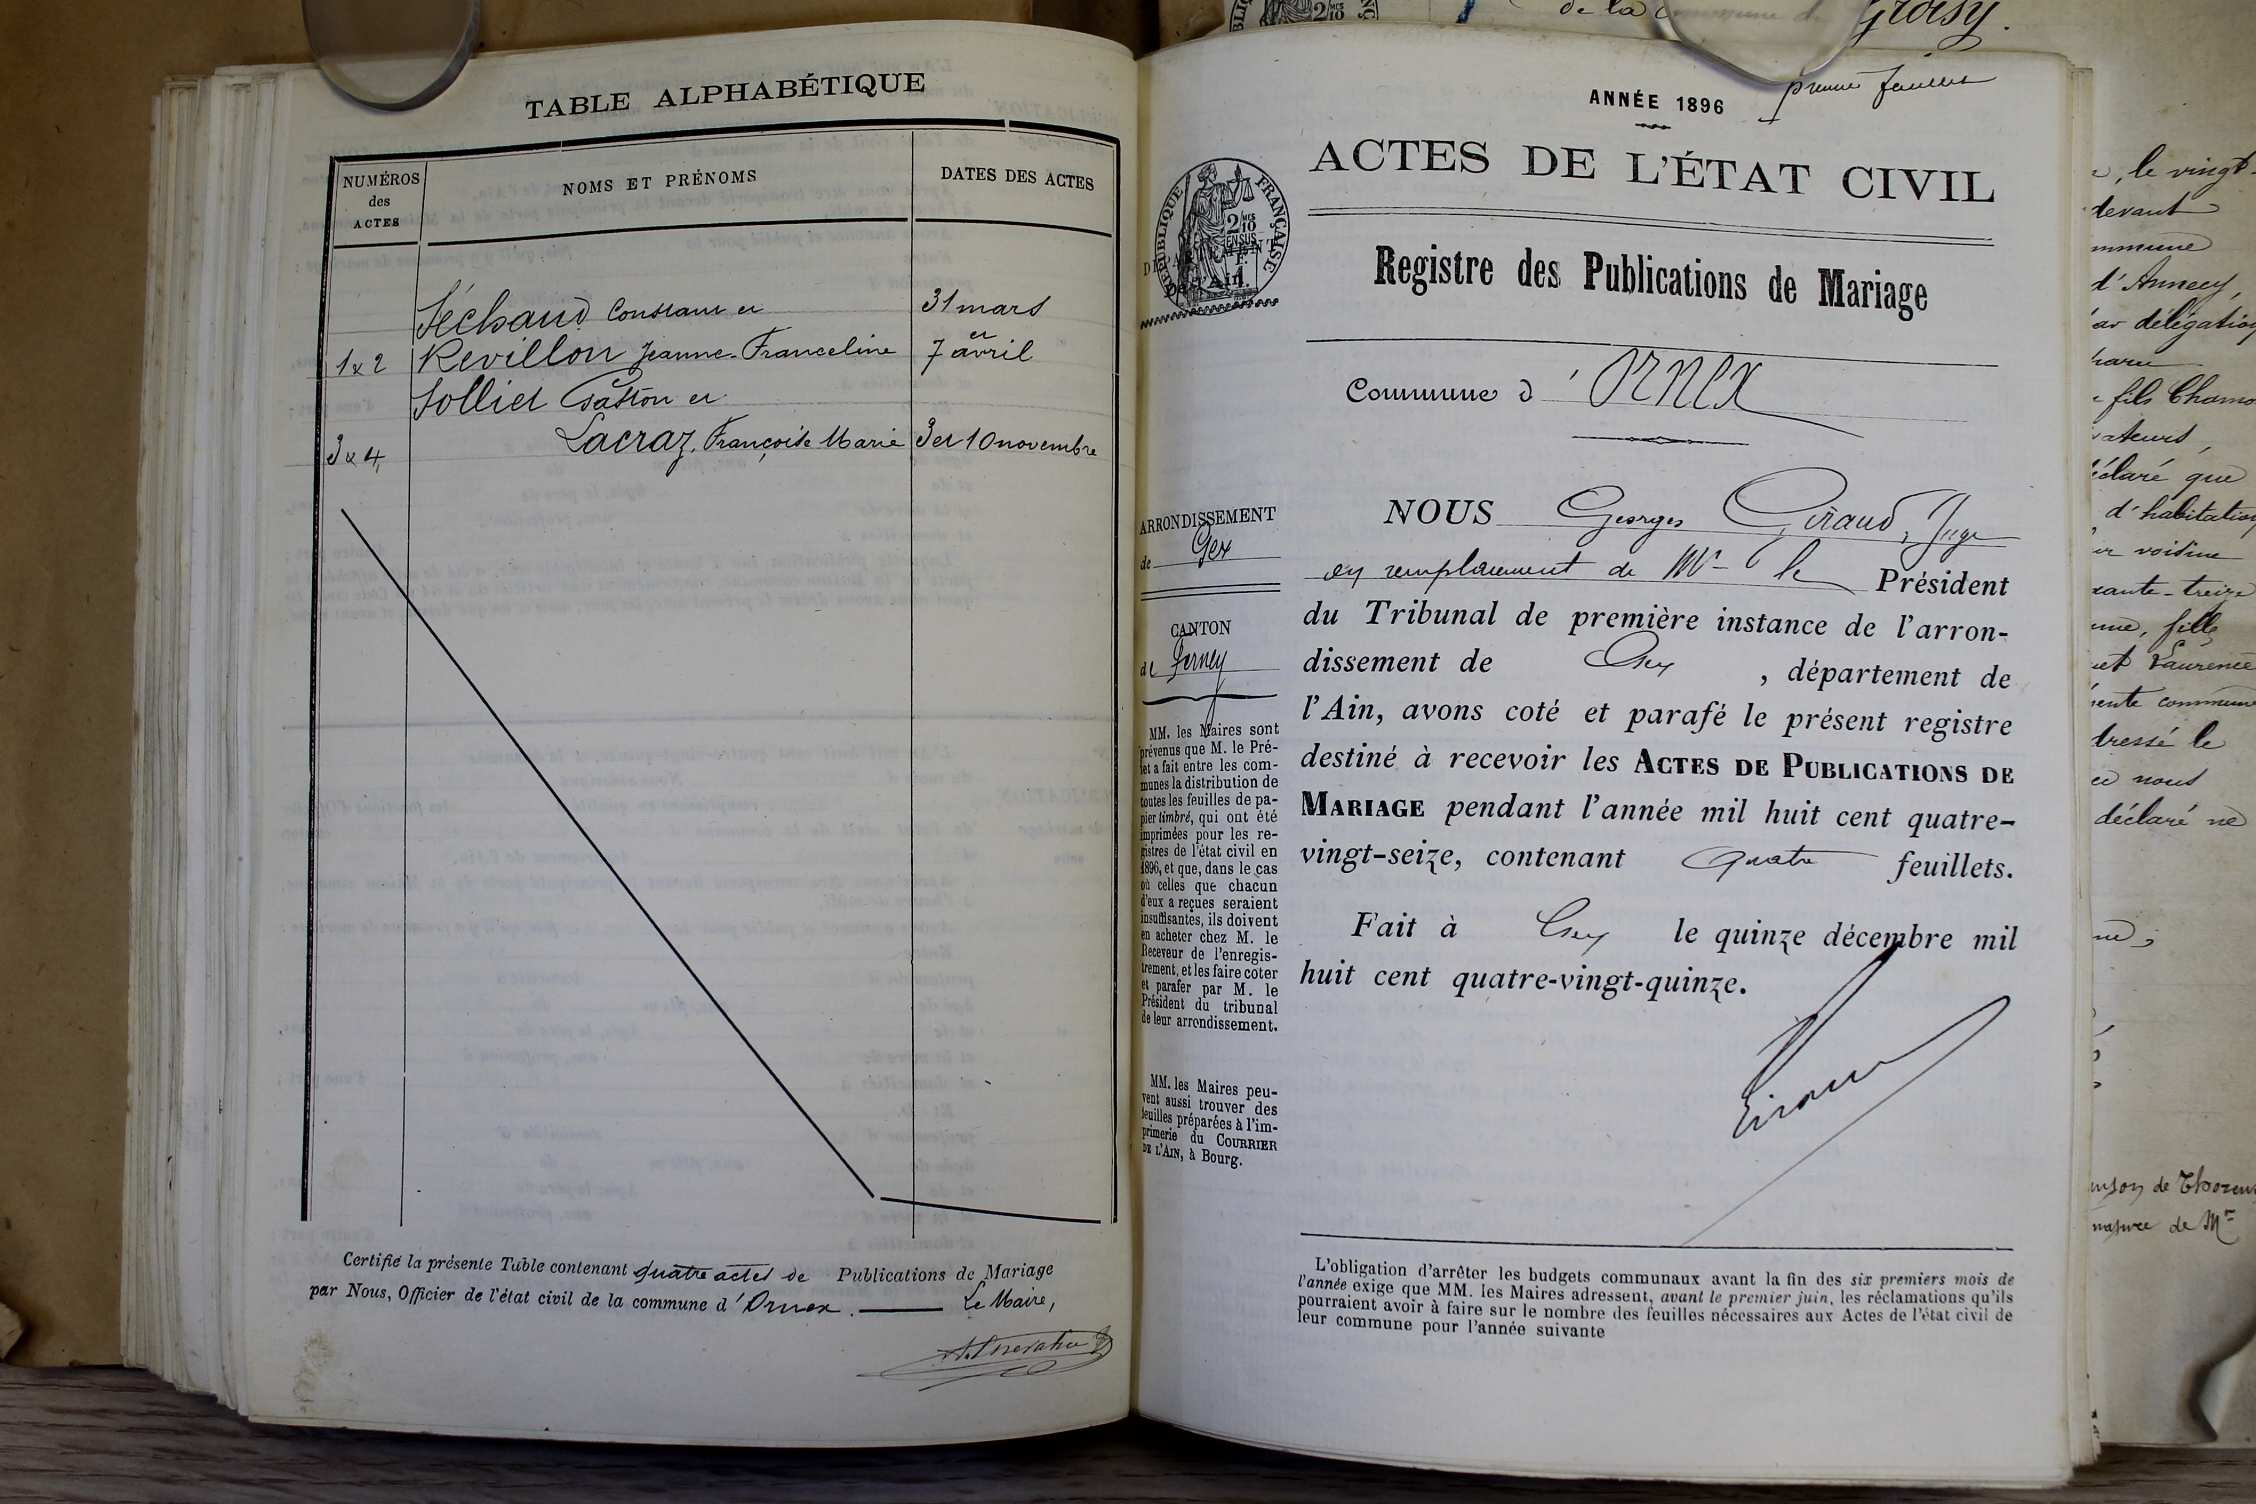 TABLE ALPHABÉTIQUE
NUMÉROS
des
ACTES
NOMS ET PRÉNOMS
DATES DES ACTES
Séchaud Constant et
31 mars
et
1 & 2 Revillon Jeanne-Franceline 7 avril
Sollier Gaston et
3 & 4 Lacraz Françoise Marie 3 et 10 novembre
Certifié la présente Table contenant quatre actes de Publications de Mariage
par Nous, Officier de l'état civil de la commune d'Ornex. Le Maire,
ANNÉE 1896
ACTES DE L'ÉTAT CIVIL
RÉPUBLIQUE FRANÇAISE
Registre des Publications de Mariage
Commune d'Ornex
ARRONDISSEMENT
de Gex
CANTON
de Ferney
MM. les Maires sont
prévenus que M. le Pré-
fet a fait entre les com-
munes la distribution de
toutes les feuilles de pa-
pier timbré, qui ont été
imprimées pour les re-
gistres de l'état civil en
1896, et que, dans le cas
où celles que chacun
d'eux a reçues seraient
insuffisantes, ils doivent
en acheter chez M. le
Receveur de l'enregis-
trement, et les faire coter
et parafer par M. le
Président du tribunal
de leur arrondissement.
MM. les Maires peu-
vent aussi trouver des
feuilles préparées à l'im-
primerie du COURRIER
DE L'AIN, à Bourg.
NOUS Georges Giraud, Juge
en remplacement de Mr le Président
du Tribunal de première instance de l'arron-
dissement de Gex, département de
l'Ain, avons coté et parafé le présent registre
destiné à recevoir les ACTES DE PUBLICATIONS DE
MARIAGE pendant l'année mil huit cent quatre-
vingt-seize, contenant quatre feuillets.
Fait à Gex le quinze décembre mil
huit cent quatre-vingt-quinze.
Giraud
L'obligation d'arrêter les budgets communaux avant la fin des six premiers mois de
l'année exige que MM. les Maires adressent, avant le premier juin, les réclamations qu'ils
pourraient avoir à faire sur le nombre des feuilles nécessaires aux Actes de l'état civil de
leur commune pour l'année suivante
de la commune de Groisy.
le vingt-
devant
d'Annecy,
délégation
fils
déclaré que
d'habitation
voisine
-treize
fille
Laurence
commune
nous
déclaré ne
de Mr